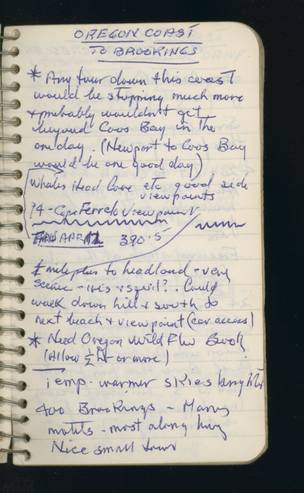 OREGON COAST
TO BROOKINGS
* Any tour down this coast
would be stopping much more
+ probably wouldn't get
beyond Coos Bay in the
one day. (Newport to Coos Bay
would be one good day)
Whales Head Cove etc good side
viewpoints
14 - Cape Ferrelo viewpoint
390.5
mile plus to headland - very
scenic - it's
walk down hill & south to
next beach & viewpoint (car access)
* Need Oregon Wild Flw Book
(Allow ½ or more)
Temp. warmer skies brighter
400 Brookings - Many
motels - most along hwy
Nice small town